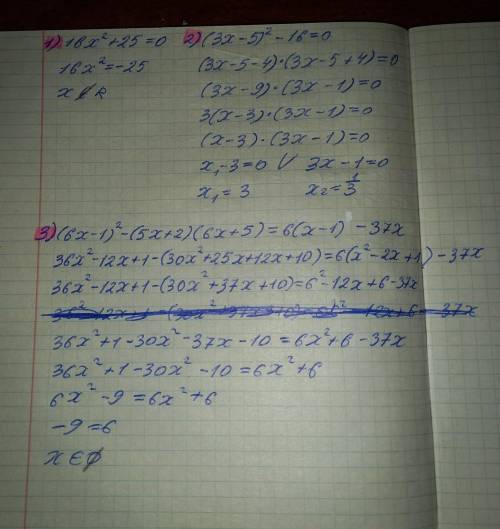 1) 16x²+25=0
16x²=-25
x ∉ R
2) (3x-5)²-16=0
(3x-5-4)·(3x-5+4)=0
(3x-9)·(3x-1)=0
3(x-3)·(3x-1)=0
(x-3)·(3x-1)=0
x₁-3=0 V 3x-1=0
x₁=3 x₂=1/3
3) (6x-1)²-(5x+2)(6x+5)=6(x-1)-37x
36x²-12x+1-(30x²+25x+12x+10)=6(x²-2x+1)-37x
36x²-12x+1-(30x²+37x+10)=6²-12x+6-37x
36x²+1-30x²-37x-10=6x²+6-37x
36x²+1-30x²-10=6x²+6
6x²-9=6x²+6
-9=6
x∈∅